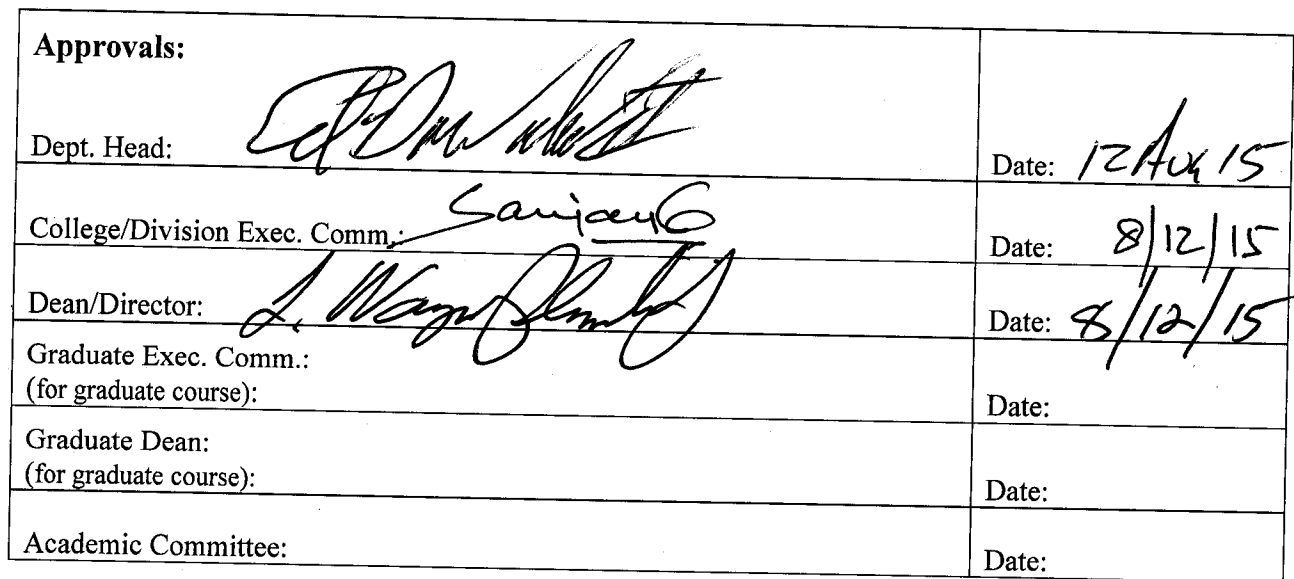 Approvals:
Dept. Head: Date: 12 Aug 15
College/Division Exec. Comm.: Sanjay G Date: 8/12/15
Dean/Director: L. Wayne Date: 8/12/15
Graduate Exec. Comm.:
(for graduate course): Date:
Graduate Dean:
(for graduate course): Date:
Academic Committee: Date: